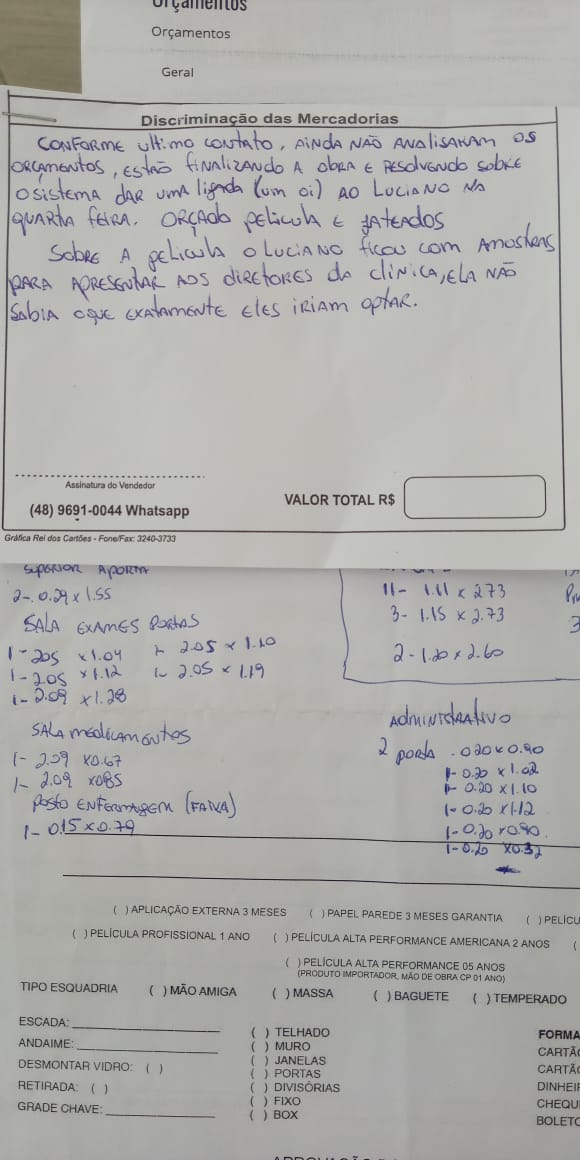 Orçamentos
Orçamentos
Geral
Discriminação das Mercadorias
CONFORME ultimo contato, AINDA NÃO ANAliSARAM OS
ORÇAMENTOS, ESTÃO fiNAliZANDO A ObRA E RESOlVENDO SObRE
O SiSTEMA DAR UMA ligada (um oi) AO LUCIANO NA
QUARTA fEIRA. ORÇADO PElicula E JATEADOS
SObRE A pElicula O LUCIANO ficou com AMOSTRAS
PARA APRESENTAR AOS diRETORES DA CliNICA, ElA NÃO
SABIA O QUE EXATAMENTE ElES iRIAM OPTAR.
Assinatura do Vendedor
(48) 9691-0044 Whatsapp
VALOR TOTAL R$
Gráfica Rei dos Cartões - Fone/Fax: 3240-3733
SUPERIOR
2- 0.29 x 1.55
11- 1.11 x 2.73
3- 1.15 x 2.73
2- 1.20 x 2.60
SALA EXAMES PORTAS
1- 205 x 1.04
1- 2.05 x 1.10
1- 2.05 x 1.12
1- 2.05 x 1.19
1- 2.09 x 1.28
SALA MEDICAMENTOS
1- 2.09 x 0.67
1- 2.09 x 085
POSTO ENFERMAGEM (FAIXA)
1- 0.15 x 0.79
ADMINISTRATIVO
2 porta - 020 x 0.90
1- 0.20 x 1.02
1- 0.20 x 1.10
1- 0.20 x 1.12
1- 0.20 x 0.90.
1- 0.20 x 0.32
( ) APLICAÇÃO EXTERNA 3 MESES ( ) PAPEL PAREDE 3 MESES GARANTIA ( ) PELÍCU
( ) PELÍCULA PROFISSIONAL 1 ANO ( ) PELÍCULA ALTA PERFORMANCE AMERICANA 2 ANOS (
( ) PELÍCULA ALTA PERFORMANCE 05 ANOS
(PRODUTO IMPORTADOR, MÃO DE OBRA CP 01 ANO)
TIPO ESQUADRIA ( ) MÃO AMIGA ( ) MASSA ( ) BAGUETE ( ) TEMPERADO
ESCADA:
ANDAIME:
DESMONTAR VIDRO: ( )
RETIRADA: ( )
GRADE CHAVE:
( ) TELHADO
( ) MURO
( ) JANELAS
( ) PORTAS
( ) DIVISÓRIAS
( ) FIXO
( ) BOX
FORMA
CARTÃ
CARTÃ
DINHEI
CHEQU
BOLETO